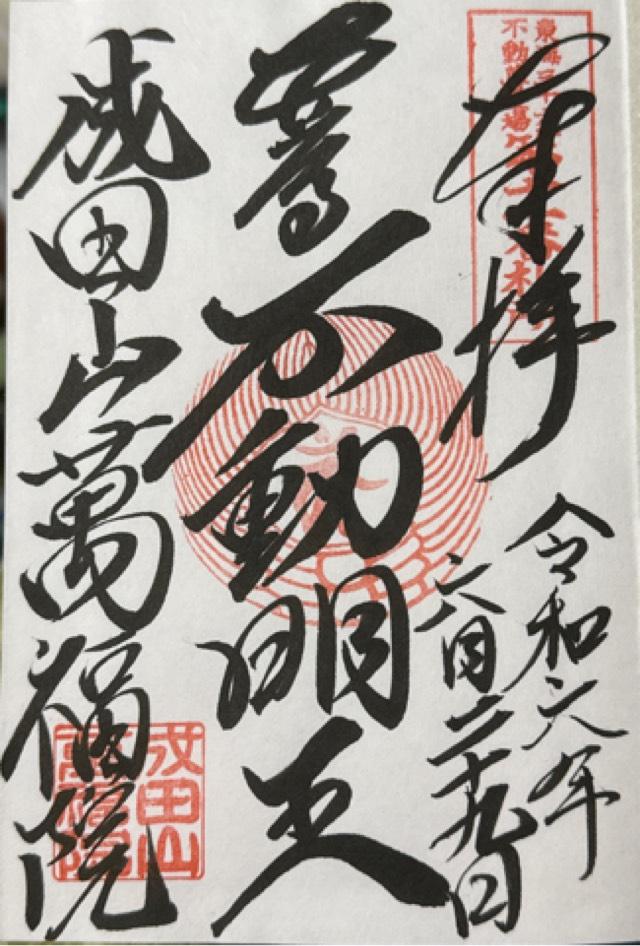 東海三十六
不動尊霊場
奉拝
令和六年
六月二十九日
不動明王
成田山萬福院
成田山
萬福院